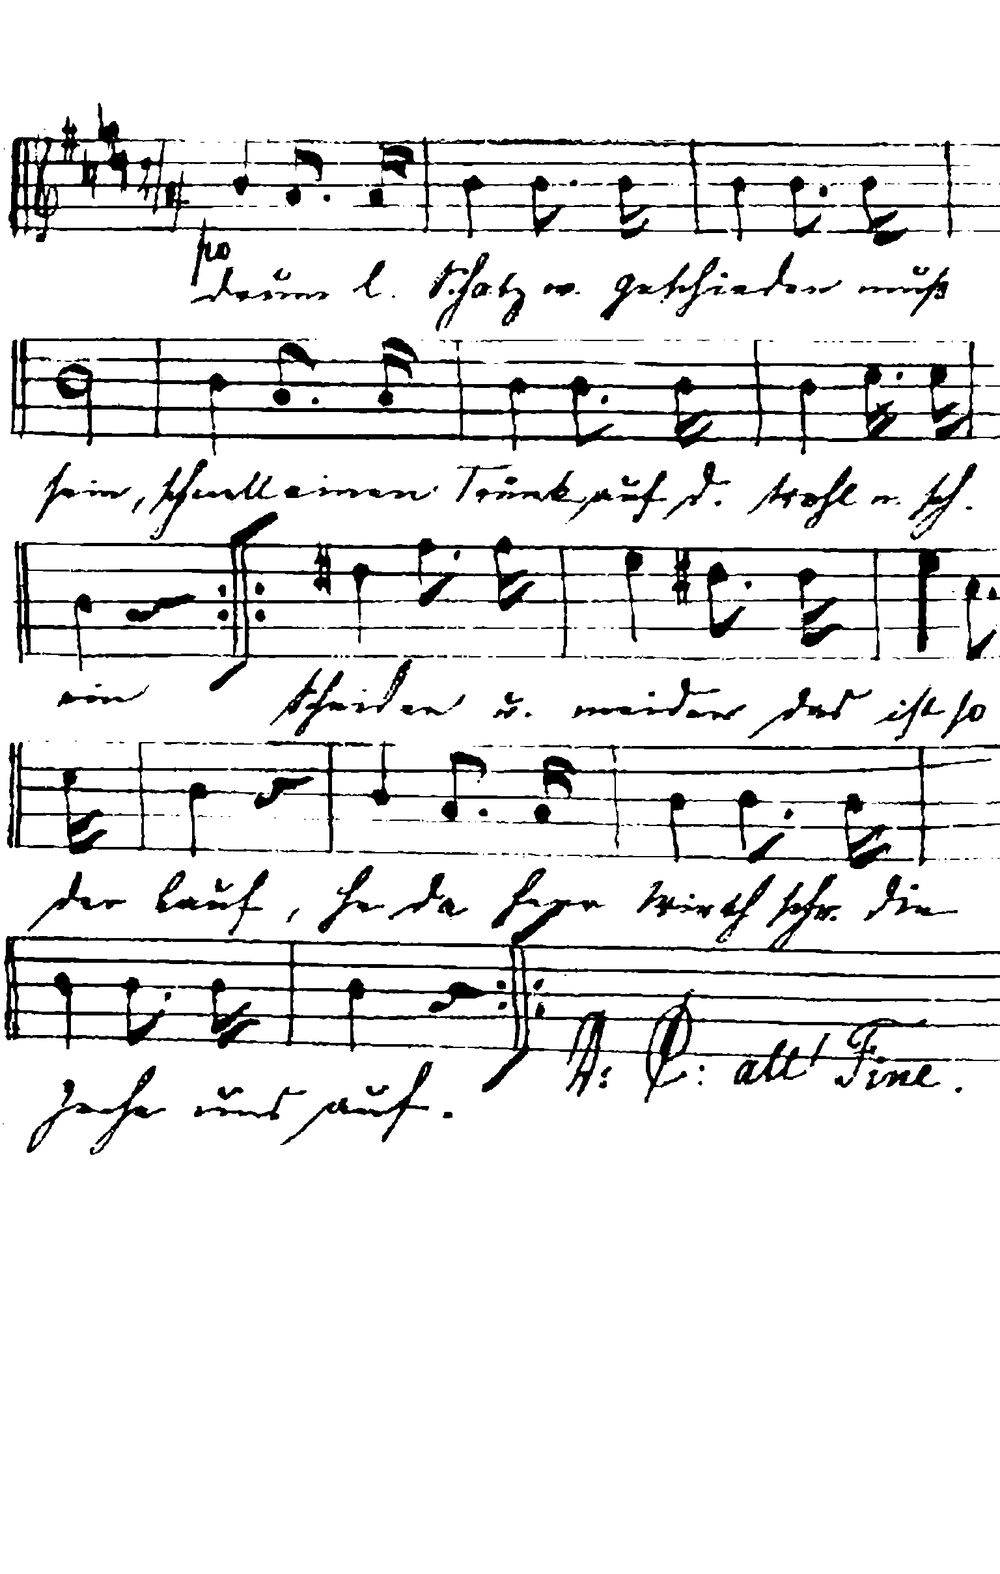 po
drum l. Schatz w. geschieden muß
sein, schnell einen Trunk auf d. wohl u. sch.
ein Scheiden u. meiden das ist so
der Lauf, he da Herr Wirth schr. die
Zeche uns auf.
D: C: all' Fine.